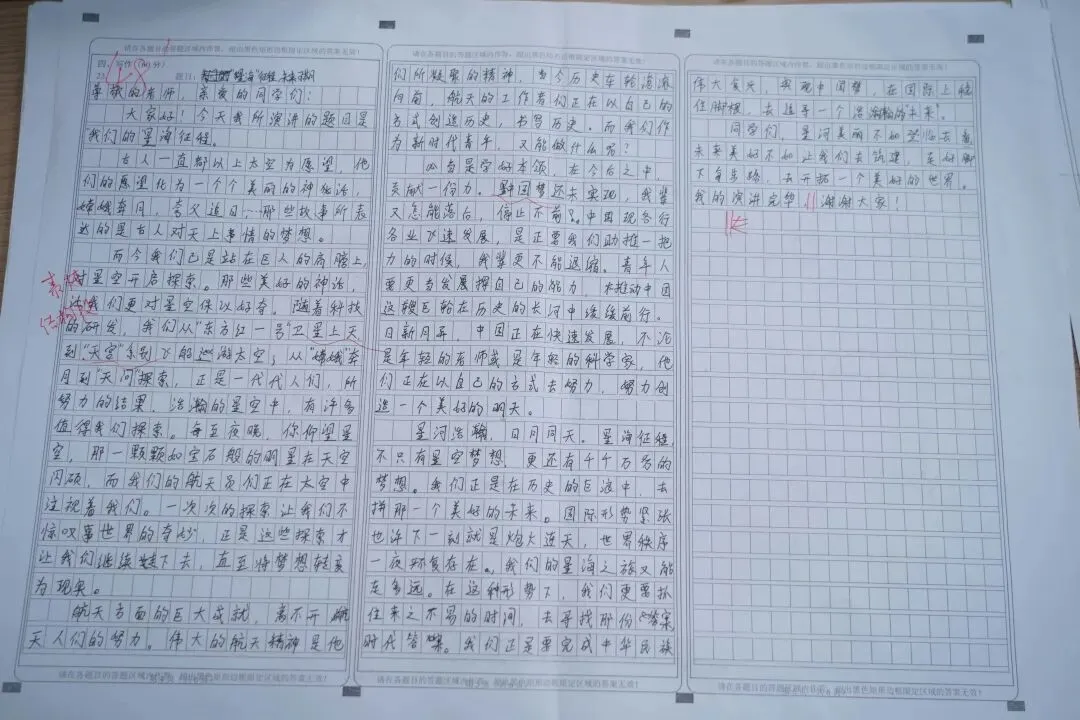 请在各题目的答题区域内作答，超出黑色矩形边框限定区域的答案无效！
四、写作（60分）
23. 题目：
尊敬的老师，亲爱的同学们：
大家好！今天我所演讲的题目是
“我们的星海征程。
古人一直都以上太空为愿望，他
们的愿望化为一个个美丽的神话，
嫦娥奔月，夸父追日…那些故事所表
达的是古人对天上事情的梦想。
而今我们已是站在巨人的肩膀上，
对星空开启探索。那些美好的神话，
我们更对星空保以好奇。随着科技
的研发，我们从“东方红一号”卫星上天，
到“天宫”系列飞船巡游太空；从“嫦娥”奔
月到“天问”探索，正是一代代人们，所
努力的结果，浩瀚的星空中，有许多
值得我们探索。每至夜晚，你仰望星
空，那一颗颗如宝石般的明星在天空
闪硕，而我们的航天员们正在太空中
注视着我们。一次次的探索让我们不
惊叹事世界的奇妙，正是这些探索才
让我们继续走下去，直至将梦想转变
为现实。
航天方面的巨大成就，离不开航
天人们的努力。伟大的航天精神是他
请在各题目的答题区域内作答，超出黑色矩形边框限定区域的答案无效！
请在各题目的答题区域内作答，超出黑色矩形边框限定区域的答案无效！
们所凝聚的精神，当今历史车轮滚滚
向前，航天的工作者们正在以自己的
方式创造历史，书写历史。而我们作
为新时代青年，又能做什么呢？
必当是学好本领，在今后之中，
贡献一份力。中国梦还未实现，我辈
又怎能落后，停止不前？中国现各行
各业飞速发展，是正要我们助推一把
力的时候，我辈更不能退缩。青年人
要更当发展择自己的能力，来推动中国
这艘巨轮在历史的长河中缓缓前行。
日新月异，中国正在快速发展，不论
是年轻的老师或是年轻的科学家，他
们正在以自己的方式去努力，努力创
造一个美好的明天。
星河浩瀚，日月同天。星海征程，
不只有星空梦想，更还有千千万万的
梦想。我们正是在历史的巨浪中，去
拼那一个美好的未来。国际形势紧张
也许下一刻就是焰火连天，世界秩序
一夜不复存在。我们的星海之旅又能
走多远。在这种形势下，我们更要抓
住来之不易的时间，去寻找那份答案
时代答案。我们正是要完成中华民族
请在各题目的答题区域内作答，超出黑色矩形边框限定区域的答案无效！
请在各题目的答题区域内作答，超出黑色矩形边框限定区域的答案无效！
伟大复兴，实现中国梦，在国际上稳
住脚根，去追寻一个浩瀚的“未来”。
同学们，星河美丽不如亲临去看，
未来美好不如让我们去筑建，走好脚
下每步路，去开拓一个美好的世界。
我的演讲完毕，谢谢大家！
请在各题目的答题区域内作答，超出黑色矩形边框限定区域的答案无效！